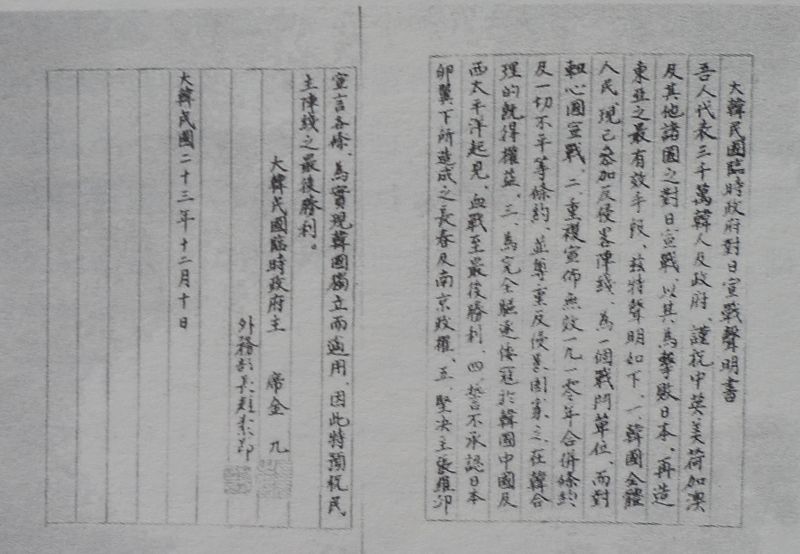 大韓民國臨時政府對日宣戰聲明書
吾人代表三千萬韓人及政府、謹祝中英美荷加澳
及其他諸國之對日宣戰、以其為擊敗日本、再造
東亞之最有效手段、玆特聲明如下、一、韓國全體
人民、現已參加反侵畧陣綫、為一個戰鬥單位、而對
軸心國宣戰、二、重複宣佈無效一九一零年合併條約
及一切不平等條約、並尊重反侵畧國家之、在韓合
理的既得權益、三、為完全驅逐倭寇於韓國中國及
西太平洋起見、血戰至最後勝利、四、誓不承認日本
卵翼下所造成之長春及南京政權、五、堅決主張羅邱
宣言各條、為實現韓國獨立而適用、因此特預祝民
主陣綫之最後勝利。
大韓民國臨時政府主 席金 九
外務部長趙素昻
大韓民國二十三年十二月十日